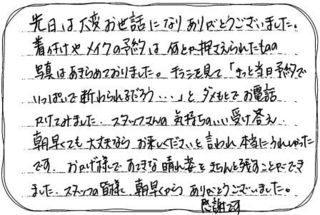 先日は大変お世話になりありがとうございました。
着付けやメイクの予約は何とか揃えられたものの
写真はあきらめておりました。チラシを見て「きっと当日予約で
いっぱいで断わられるだろう・・・」とダメもとでお電話
かけてみました。スタッフさんの気持ちのいい受け答え、
朝早くても大丈夫なのでお来しくださいと言われ本当にうれしかった
です。おかげ様で、大きな晴れ姿をきちんと残すことができ
ました。スタッフの皆様、朝早くから ありがとうございました。
感謝です